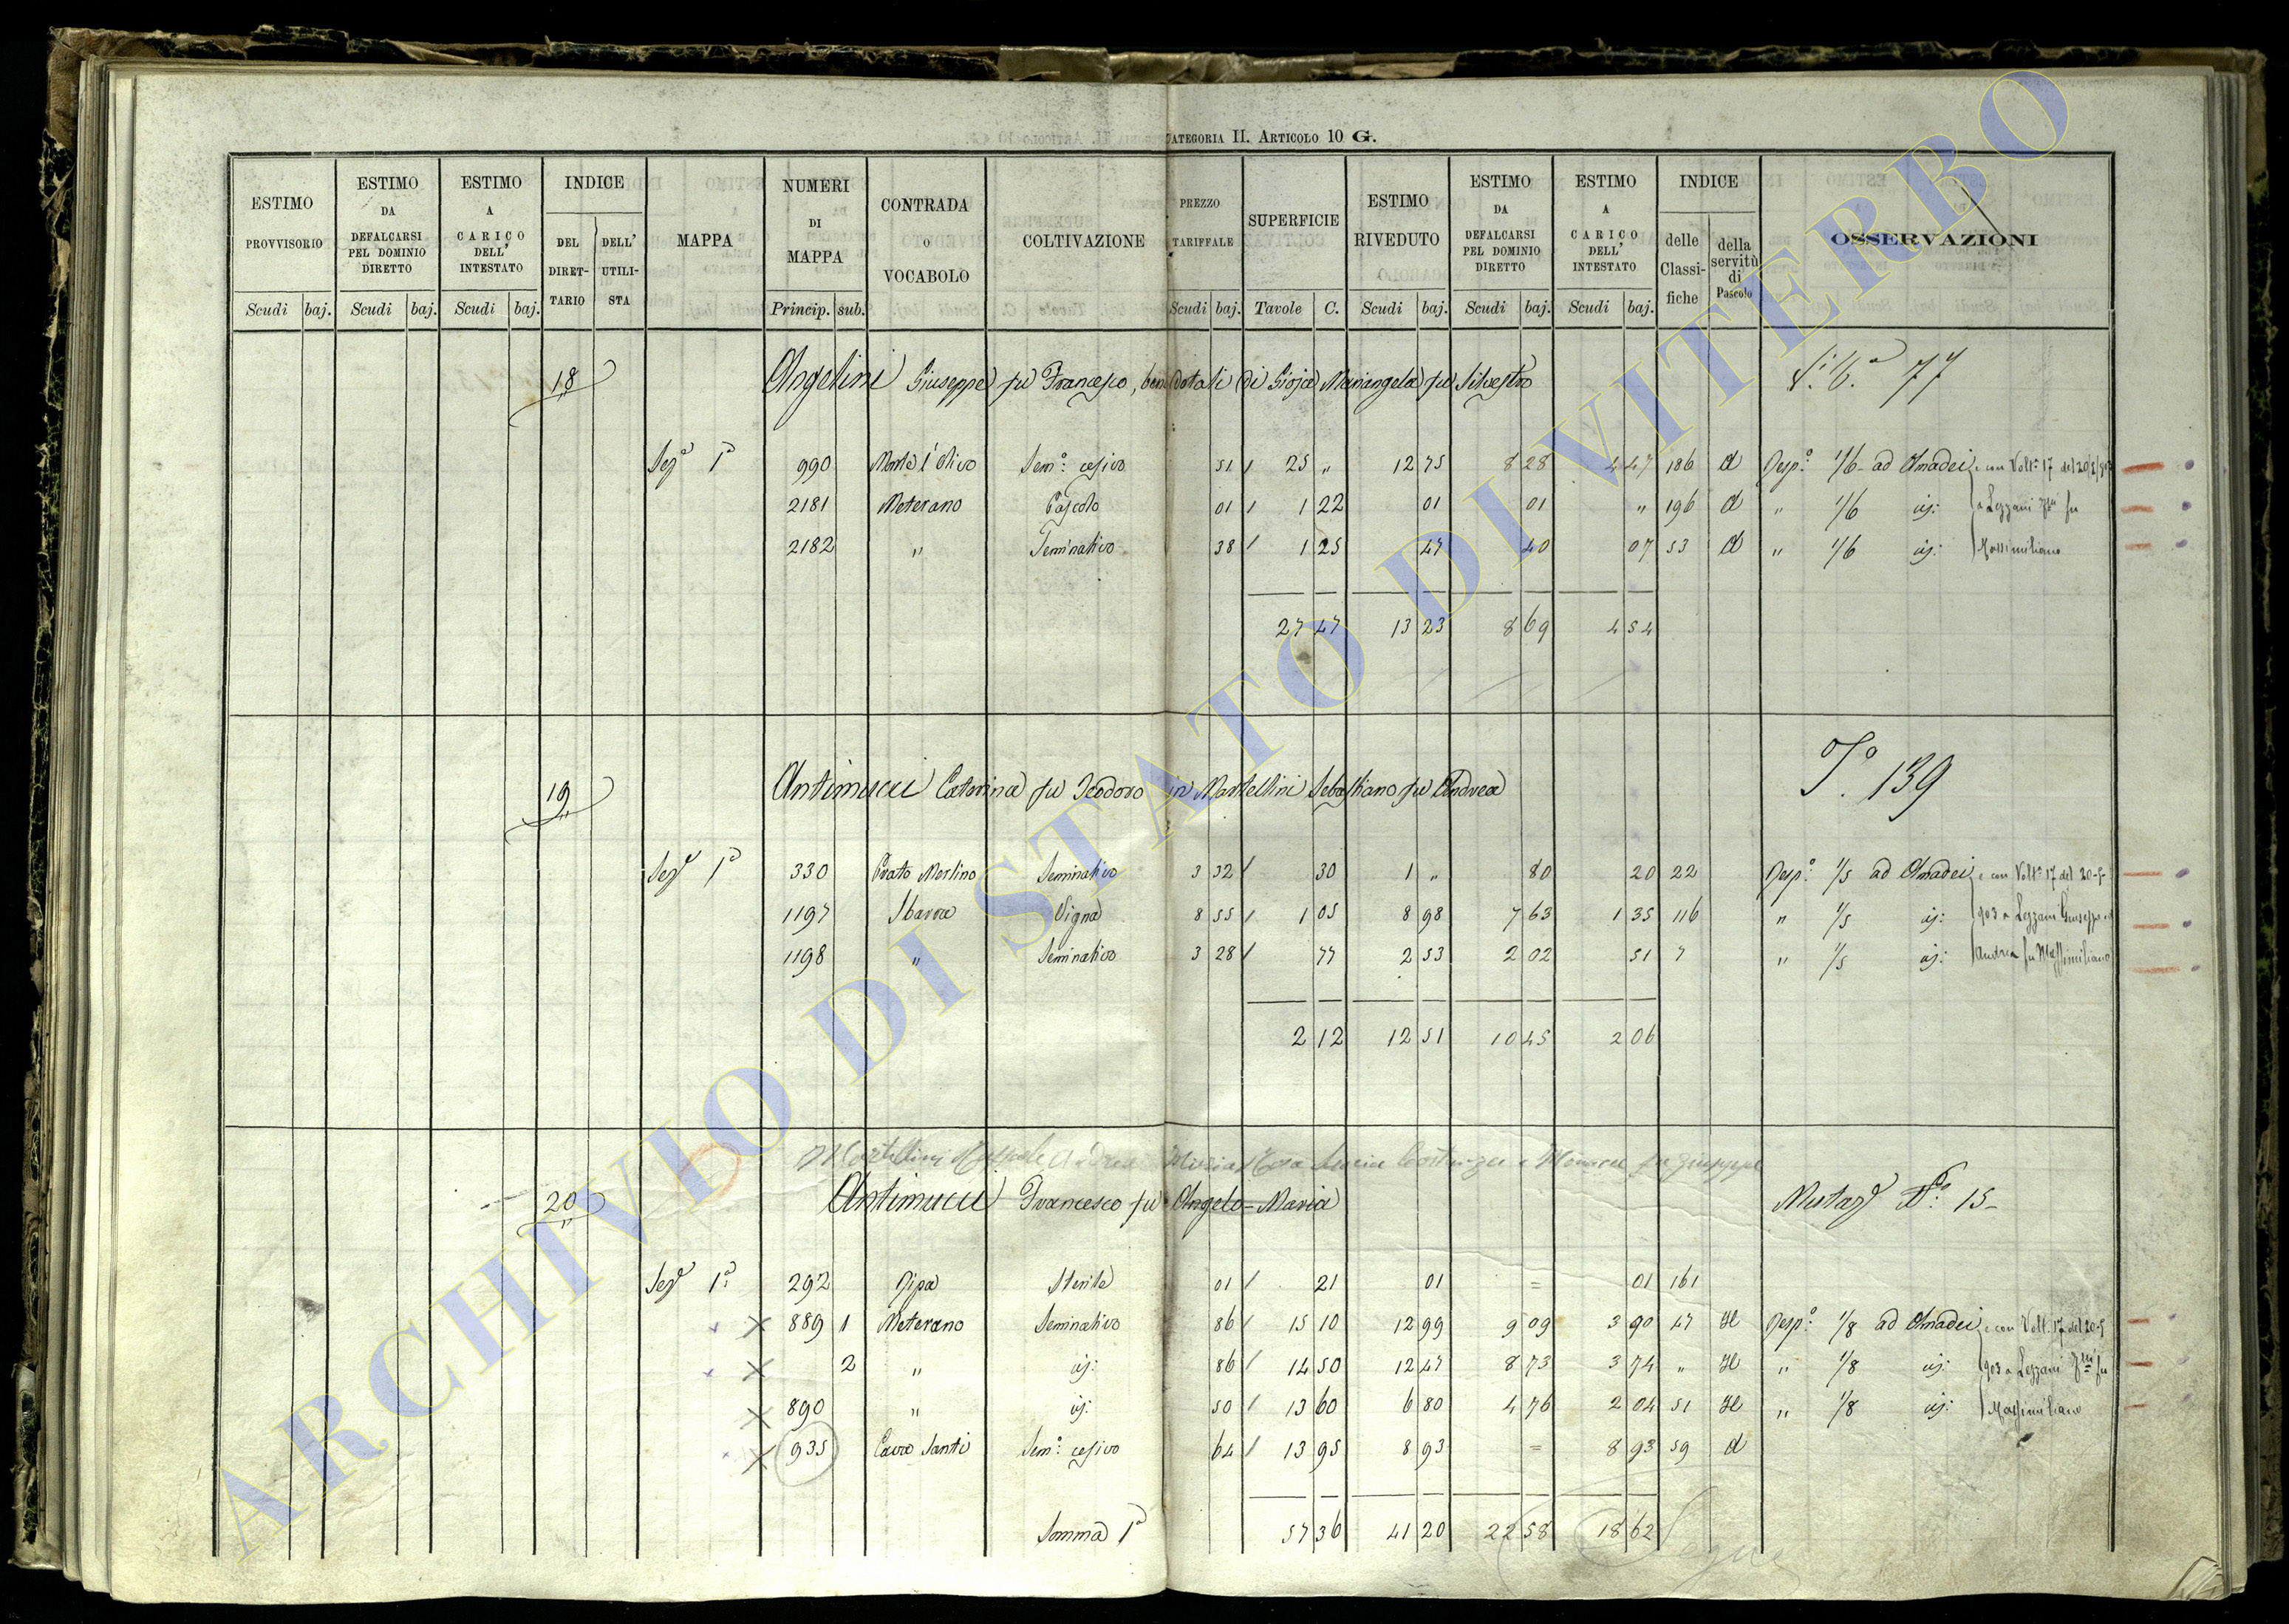 CATEGORIA II. ARTICOLO 10 G.
ESTIMO PROVVISORIO | ESTIMO DA DEFALCARSI PEL DOMINIO DIRETTO | ESTIMO A CARICO DELL' INTESTATO | INDICE DEL DIRETTARIO | DELL' UTILISTA | MAPPA | NUMERI DI MAPPA | CONTRADA O VOCABOLO | COLTIVAZIONE | PREZZO TARIFFALE | SUPERFICIE | ESTIMO RIVEDUTO | ESTIMO DA DEFALCARSI PEL DOMINIO DIRETTO | ESTIMO A CARICO DELL' INTESTATO | INDICE delle Classifiche | della servitù di Pascolo | OSSERVAZIONI
Scudi baj. Scudi baj. Scudi baj. Princip. sub. Scudi baj. Tavole C. Scudi baj. Scudi baj. Scudi baj.
18 Angelini Giuseppe fu Francesco, beni dotali di Gioja Mariangela fu Silvestro 77
Sezе 1a 990 Monte l'Olivo Sem.o cesivo 51 25 " 12 75 8 28 4 47 186 d Risp.o 1/6 ad Amadei e con Volt.a 17 del 20/5/903
2181 Meterano Pascolo 01 1 22 01 01 " 196 d " 1/6 id: a Lezzani Gius. fu
2182 " Seminativo 38 1 25 47 40 07 53 d " 1/6 id: Massimiliano
27 47 13 23 8 69 4 54
19 Antimucci Caterina fu Teodoro in Martellini Sebastiano fu Andrea T.o 139
Seze 1a 330 Prato Merlino Seminativo 3 32 30 1 " 80 20 22 Risp.o 1/5 ad Amadei e con Volt.a 17 del 20-5-
1197 Sbarra Vigna 8 55 1 05 8 98 7 63 1 35 116 " 1/5 id: 903 a Lezzani Giuseppe ed
1198 " Seminativo 3 28 77 2 53 2 02 51 7 " 1/5 id: Andrea fu Massimiliano
2 12 12 51 10 45 2 06
Martellini Andrea Maria Rosa Lucia Costanza e fu Giuseppe
20 Antimucci Francesco fu Angelo-Maria Mutaz.e 15-
Seze 1a 292 Ripa Sterile 01 21 01 = 01 161
889 1 Meterano Seminativo 86 15 10 12 99 9 09 3 90 47 H Risp.o 1/8 ad Amadei e con Volt. 17 del 20-5
2 " id: 86 14 50 12 47 8 73 3 74 " H " 1/8 id: 903 a Lezzani fu
890 " id: 50 13 60 6 80 4 76 2 04 51 H " 1/8 id: Massimiliano
935 Cavo Santi Sem.o cesivo 64 13 95 8 93 = 8 93 59 d
Somma 1a 57 36 41 20 22 58 18 62
Segue
ARCHIVIO DI STATO DI VITERBO